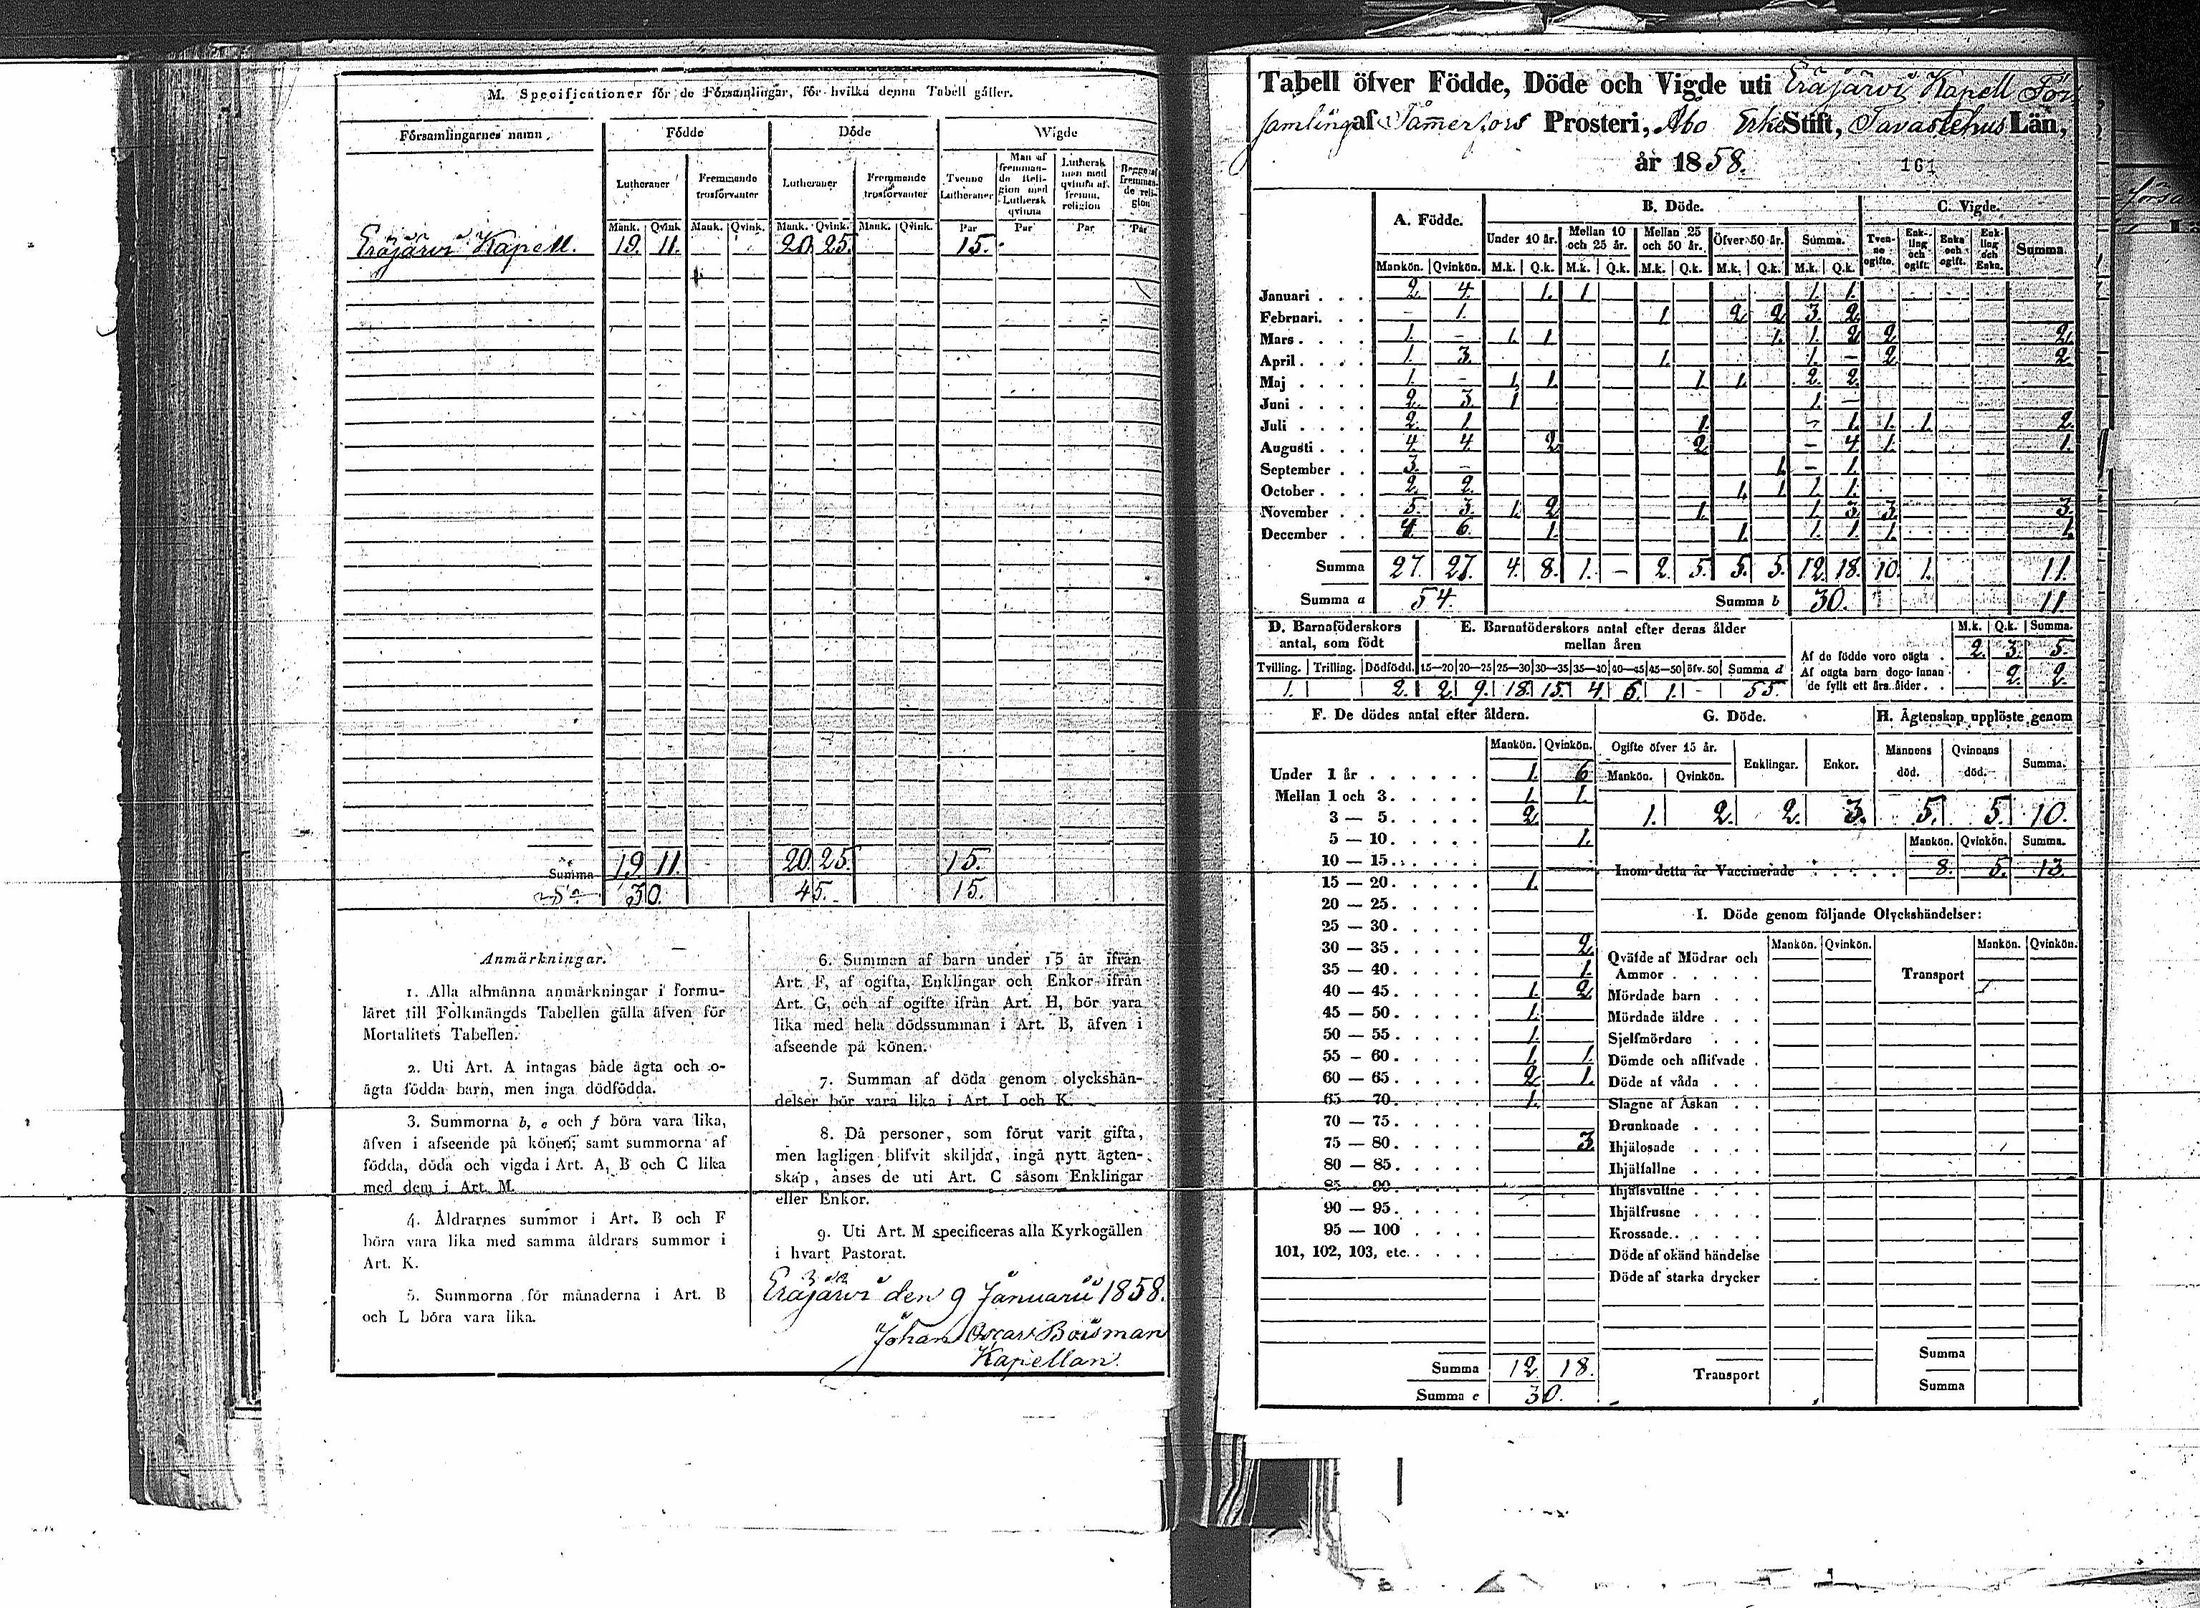 M. Specificationer för de Församlingar, för hvilka denna Tabell gäller.
Församlingarnes namn. Födde Döde Wigde
Lutheraner Fremmande trosförvanter Lutheraner Fremmande trosförvanter Tvenne Lutheraner Man af fremmande Religion med Luthersk qvinna Luthersk man med qvinna af fremm. religion Begge af fremmande religion
Mank. Qvink. Mank. Qvink. Mank. Qvink. Mank. Qvink. Par Par Par Par
Eräjärvi Kapell. 19. 11. 20. 25. 15.
Summa 19. 11. 20. 25. 15.
30. 45. 15.
Anmärkningar.
1. Alla allmänna anmärkningar i formu-
läret till Folkmängds Tabellen gälla äfven för
Mortalitets Tabellen.
2. Uti Art. A intagas både ägta och o-
ägta födda barn, men inga dödfödda.
3. Summorna b, e och f böra vara lika,
äfven i afseende på könen; samt summorna af
födda, döda och vigda i Art. A, B och C lika
med dem i Art. M.
4. Åldrarnes summor i Art. B och F
böra vara lika med samma åldrars summor i
Art. K.
5. Summorna för månaderna i Art. B
och L böra vara lika.
6. Summan af barn under 15 år ifrån
Art. F, af ogifta, Enklingar och Enkor ifrån
Art. G, och af ogifte ifrån Art. H, bör vara
lika med hela dödssumman i Art. B, äfven i
afseende på könen.
7. Summan af döda genom olyckshän-
delser bör vara lika i Art. I och K.
8. Då personer, som förut varit gifta,
men lagligen blifvit skiljda, ingå nytt ägten-
skap, anses de uti Art. C såsom Enklingar
eller Enkor.
9. Uti Art. M specificeras alla Kyrkogällen
i hvart Pastorat.
Eräjärvi den 9 Januarii 1858.
Johan Oscar Boisman
Kapellan.
Tabell öfver Födde, Döde och Vigde uti Eräjärvi Kapell För
samling af Tammerfors Prosteri, Åbo Erke Stift, Tavastehus Län,
år 1858. 161
A. Födde. B. Döde. C. Vigde.
Under 10 år. Mellan 10 och 25 år. Mellan 25 och 50 år. Öfver 50 år. Summa. Tvenne ogifte. Enkling och ogift. Enka och ogift. Enkling och Enka. Summa.
Mankön. Qvinkön. M.k. Q.k. M.k. Q.k. M.k. Q.k. M.k. Q.k. M.k. Q.k.
Januari . . . 2. 4. 1. 1. 1. 1.
Februari. . . - 1. 1. 2. 2. 3. 2.
Mars . . . . 1. - 1. 1. 1. 1. 2. 2. 2.
April . . . . 1. 3. 1. 1. - 2. 2.
Maj . . . . 1. - 1. 1. 1. 1. 2. 2.
Juni . . . . 2. 3. 1. 1. -
Juli . . . . 2. 1. 1. - 1. 1. 1. 2.
Augusti . . . 4. 4. 2. 2. - 4. 1. 1.
September . . 3. - 1. - 1.
October . . . 2. 2. 1. 1. 1. 1.
November . . 5. 3. 1. 2. 1. 1. 3. 3. 3.
December . . 4. 6. 1. 1. 1. 1. 1. 1.
Summa 27. 27. 4. 8. 1. - 2. 5. 5. 5. 12. 18. 10. 1. 11.
Summa a 54. Summa b 30. 11.
D. Barnaföderskors antal, som födt E. Barnaföderskors antal efter deras ålder mellan åren M.k. Q.k. Summa.
Tvilling. Trilling. Dödfödd. 15—20 20—25 25—30 30—35 35—40 40—45 45—50 öfv. 50 Summa d
1. 2. 2. 9. 18. 15. 4. 6. 1. - 55.
Af de födde voro oägta . 2. 3. 5.
Af oägta barn dogo innan de fyllt ett års ålder . . 2. 2.
F. De dödes antal efter åldern. G. Döde. H. Ägtenskap upplöste genom
Mankön. Qvinkön. Ogifte öfver 15 år. Enklingar. Enkor. Mannens död. Qvinnans död. Summa.
Mankön. Qvinkön.
1. 2. 2. 3. 5. 5. 10.
Mankön. Qvinkön. Summa.
Inom detta år Vaccinerade . . . . . 8. 5. 13.
Under 1 år . . . . . . 1. 6.
Mellan 1 och 3 . . . . . 1. 1.
3 — 5 . . . . . 2.
5 — 10 . . . . . 1.
10 — 15 . . . . .
15 — 20 . . . . . 1.
20 — 25 . . . . .
25 — 30 . . . . .
30 — 35 . . . . . 2.
35 — 40 . . . . . 1.
40 — 45 . . . . . 1. 2.
45 — 50 . . . . . 1.
50 — 55 . . . . . 1.
55 — 60 . . . . . 1. 1.
60 — 65 . . . . . 2. 1.
65 — 70 . . . . . 1.
70 — 75 . . . . .
75 — 80 . . . . . 3.
80 — 85 . . . . .
85 — 90 . . . . .
90 — 95 . . . . .
95 — 100 . . . .
101, 102, 103, etc. . . . .
Summa 12. 18.
Summa e 30.
I. Döde genom följande Olyckshändelser:
Mankön. Qvinkön. Mankön. Qvinkön.
Qväfde af Mödrar och
Ammor . . . . . Transport
Mördade barn . . .
Mördade äldre . . .
Sjelfmördare . . .
Dömde och aflifvade .
Döde af våda . . .
Slagne af Åskan . .
Drunknade . . . .
Ihjälosade . . . .
Ihjälfallne . . . .
Ihjälsvultne . . . .
Ihjälfrusne . . . .
Krossade . . . . .
Döde af okänd händelse
Döde af starka drycker
Summa
Transport Summa